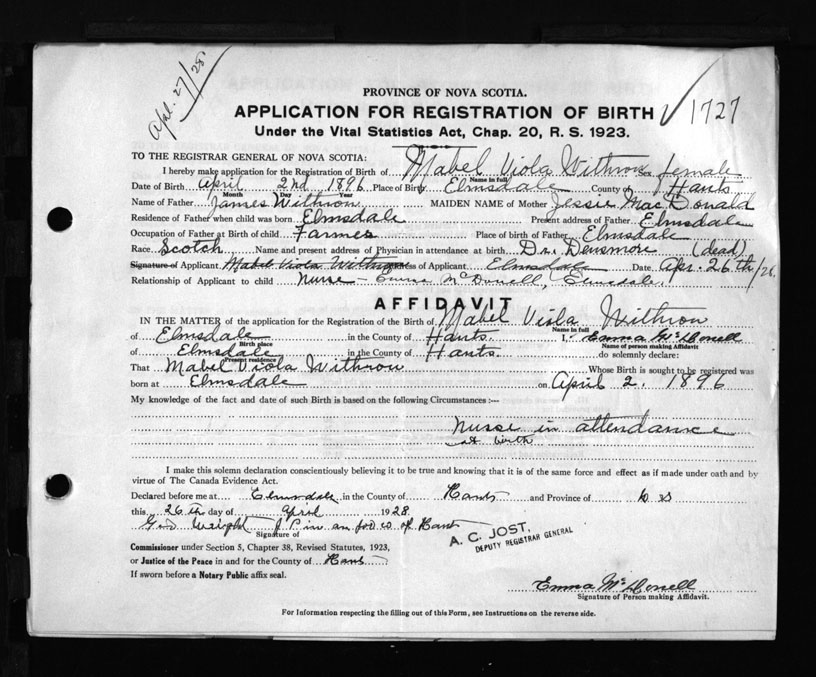 Apl. 27/28
PROVINCE OF NOVA SCOTIA.
APPLICATION FOR REGISTRATION OF BIRTH
1727
Under the Vital Statistics Act, Chap. 20, R. S. 1923.
TO THE REGISTRAR GENERAL OF NOVA SCOTIA:
I hereby make application for the Registration of Birth of Mabel Viola Withrow Sex female
Name in full
Date of Birth April 2nd 1896 Place of Birth Elmsdale County of Hants
Month Day Year
Name of Father James Withrow MAIDEN NAME of Mother Jessie MacDonald
Residence of Father when child was born Elmsdale Present address of Father Elmsdale
Occupation of Father at Birth of child Farmer Place of birth of Father Elmsdale
Race Scotch Name and present address of Physician in attendance at birth Dr. Densmore (dead)
Signature of Applicant Mabel Viola Withrow Address of Applicant Elmsdale Date Apr. 26th/28.
Relationship of Applicant to child Nurse - Emma McDonell, Elmsdale.
AFFIDAVIT
IN THE MATTER of the application for the Registration of the Birth of Mabel Viola Withrow
Name in full
of Elmsdale in the County of Hants. I, Emma McDonell
Birth place Name of person making Affidavit
of Elmsdale in the County of Hants. do solemnly declare:
Present residence
That Mabel Viola Withrow Whose Birth is sought to be registered was
born at Elmsdale on April 2. 1896
My knowledge of the fact and date of such Birth is based on the following Circumstances :---
Nurse in attendance
at birth
I make this solemn declaration conscientiously believing it to be true and knowing that it is of the same force and effect as if made under oath and by
virtue of The Canada Evidence Act.
Declared before me at Elmsdale in the County of Hants and Province of N S
this 26th day of April 1928
J P in an for co of Hants
Signature of
A. C. JOST,
DEPUTY REGISTRAR GENERAL
Commissioner under Section 5, Chapter 38, Revised Statutes, 1923,
or Justice of the Peace in and for the County of Hants
If sworn before a Notary Public affix seal.
Emma McDonell
Signature of Person making Affidavit.
For Information respecting the filling out of this Form, see Instructions on the reverse side.